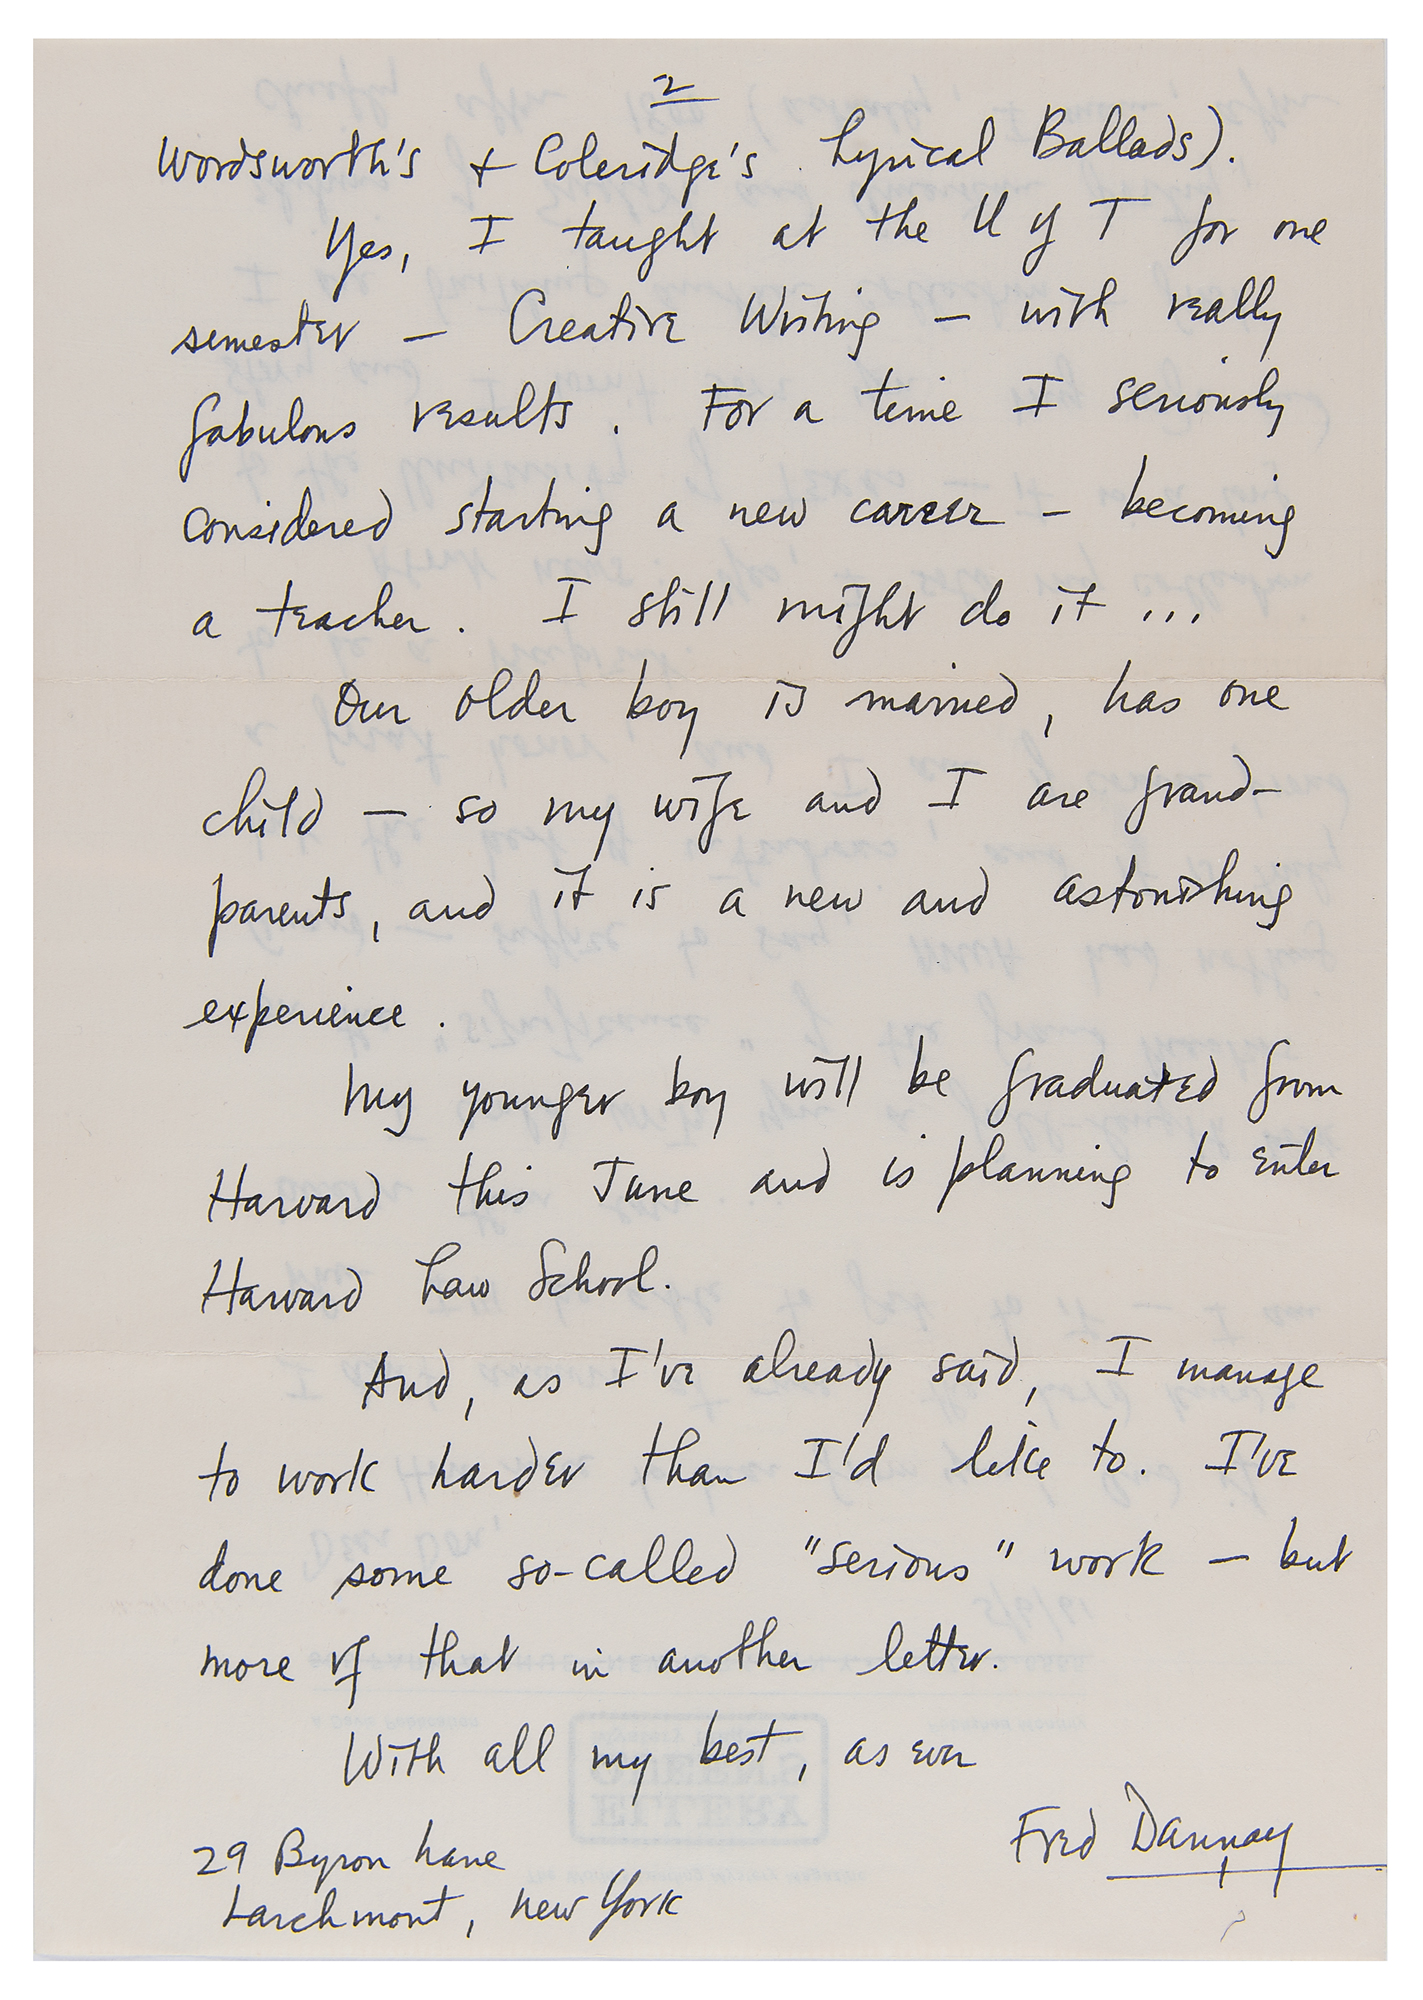 2
Wordsworth's & Coleridge's Lyrical Ballads).
Yes, I taught at the U of T for one
semester — Creative Writing — with really
fabulous results. For a time I seriously
considered starting a new career — becoming
a teacher. I still might do it ...
Our older boy is married, has one
child — so my wife and I are grand-
parents, and it is a new and astonishing
experience.
My younger boy will be graduated from
Harvard this June and is planning to enter
Harvard Law School.
And, as I've already said, I manage
to work harder than I'd like to. I've
done some so-called "serious" work — but
more of that in another letter.
With all my best, as ever
Fred Dannay
29 Byron Lane
Larchmont, New York